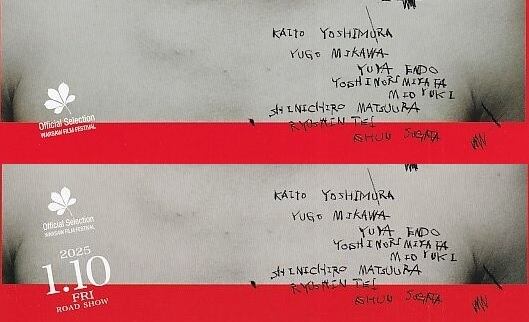 KAITO YOSHIMURA
YUGO MIKAWA
YUYA ENDO
YOSHINORI MIYATA
MIO YUKI
SHINICHIRO MATSUURA
RYUSHIN TEI
SHUU SUGATA
Official Selection
WARSAW FILM FESTIVAL
KAITO YOSHIMURA
YUGO MIKAWA
YUYA ENDO
YOSHINORI MIYATA
MIO YUKI
SHINICHIRO MATSUURA
RYUSHIN TEI
SHUU SUGATA
Official Selection
WARSAW FILM FESTIVAL
2025
1.10
FRI
ROAD SHOW